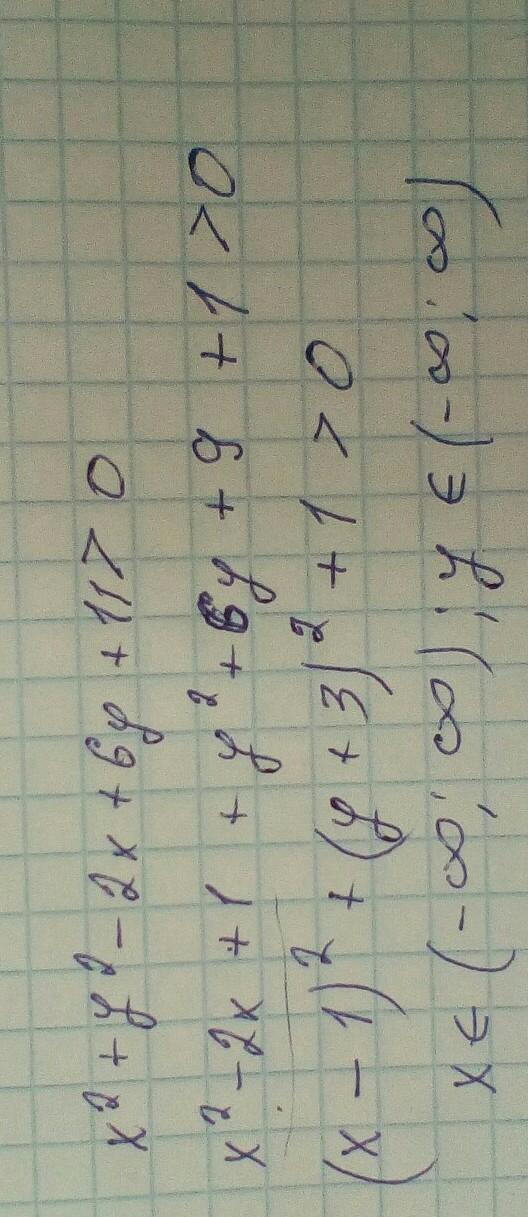 x² + y² - 2x + 6y + 11 > 0
x² - 2x + 1 + y² + 6y + 9 + 1 > 0
(x - 1)² + (y + 3)² + 1 > 0
x ∈ (-∞; ∞); y ∈ (-∞; ∞)